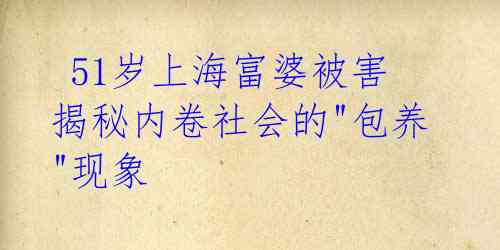 51岁上海富婆被害
揭秘内卷社会的"包养
"现象